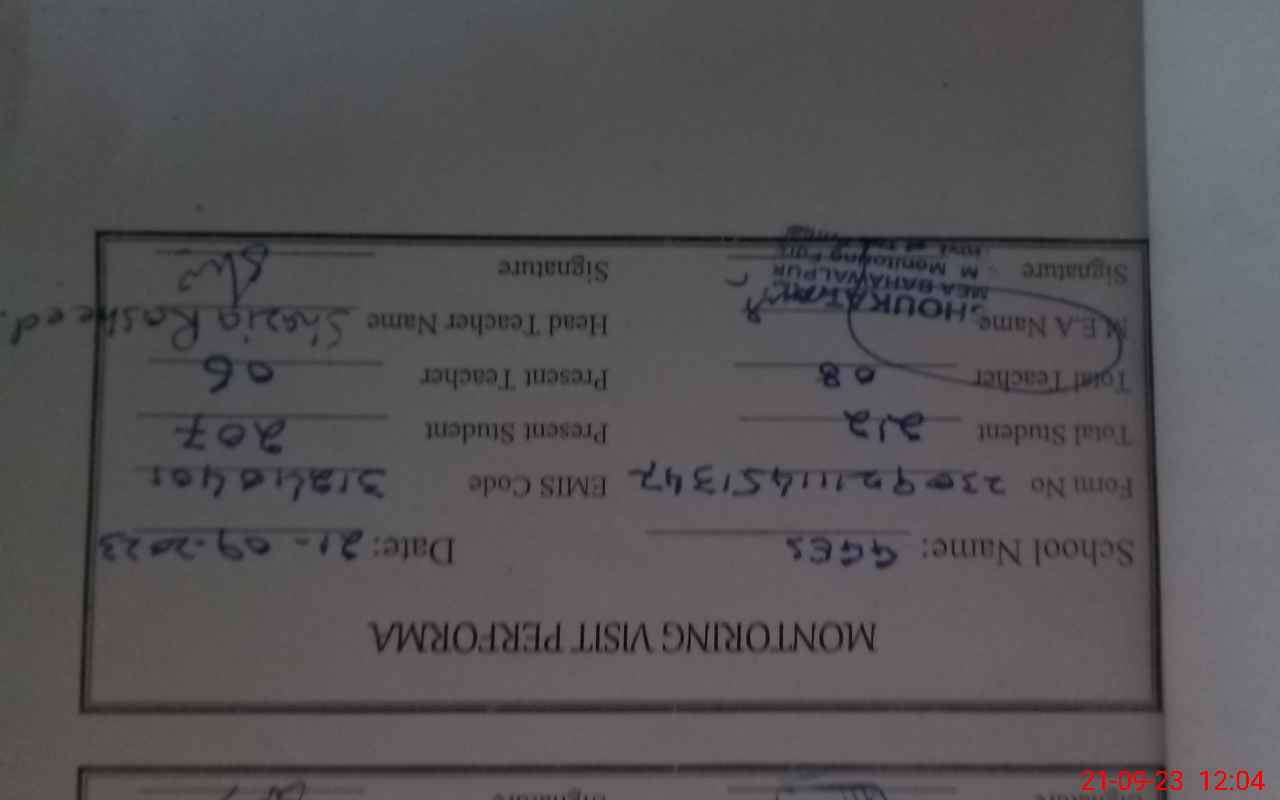 MONTORING VISIT PERFORMA
School Name: GGES Date: 21-09-2023
Form No 23092111451347 EMIS Code 31210401
Total Student 212 Present Student 207
Total Teacher 08 Present Teacher 06
M.E.A Name SHOUKAT Head Teacher Name Shazia Rasheed.
MEA BAHAWALPUR
M Monitoring
Signature Signature
Signature Signature
21-09-23 12:04